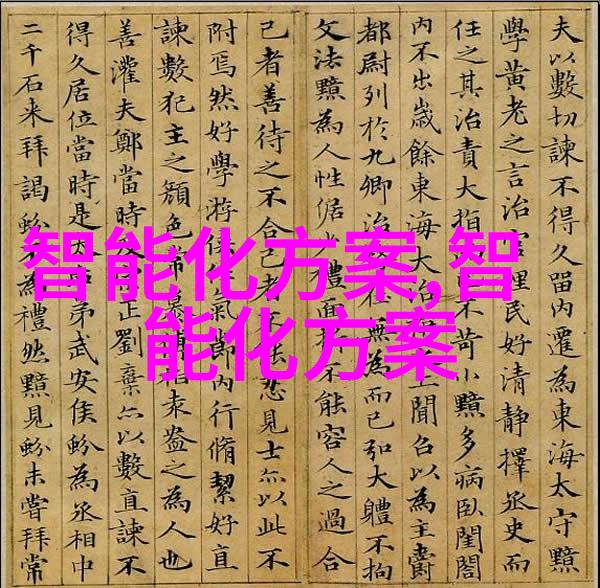 夫以數切諫不得久留內遷為東海太守黯
學黃老之言治官理民好清靜擇丞史而
任之其治責大指不苛小黯多病臥閨閤
內不出歲餘東海大治上聞召以為主爵
都尉列於九卿治無為而已弘大體不拘
文法黯為人性倨少禮面折不能容人之過合
己者善待之不合己者不忍見士亦以此不
附焉然好學游俠氣節內行脩絜好直
諫數犯主之顏色常慕袁盎之為人也
善灌夫鄭當時正劉棄亦以數直諫不
得久居位當時是弟武安侯蚡為丞相中
二千石來拜謁蚡為禮然黯見蚡未嘗拜常
智能化方案,智
能化方案